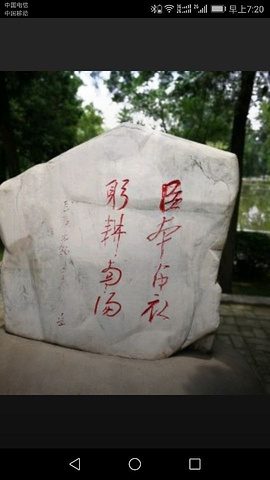 中国电信
中国移动
早上7:20
臣本布衣
躬耕南阳